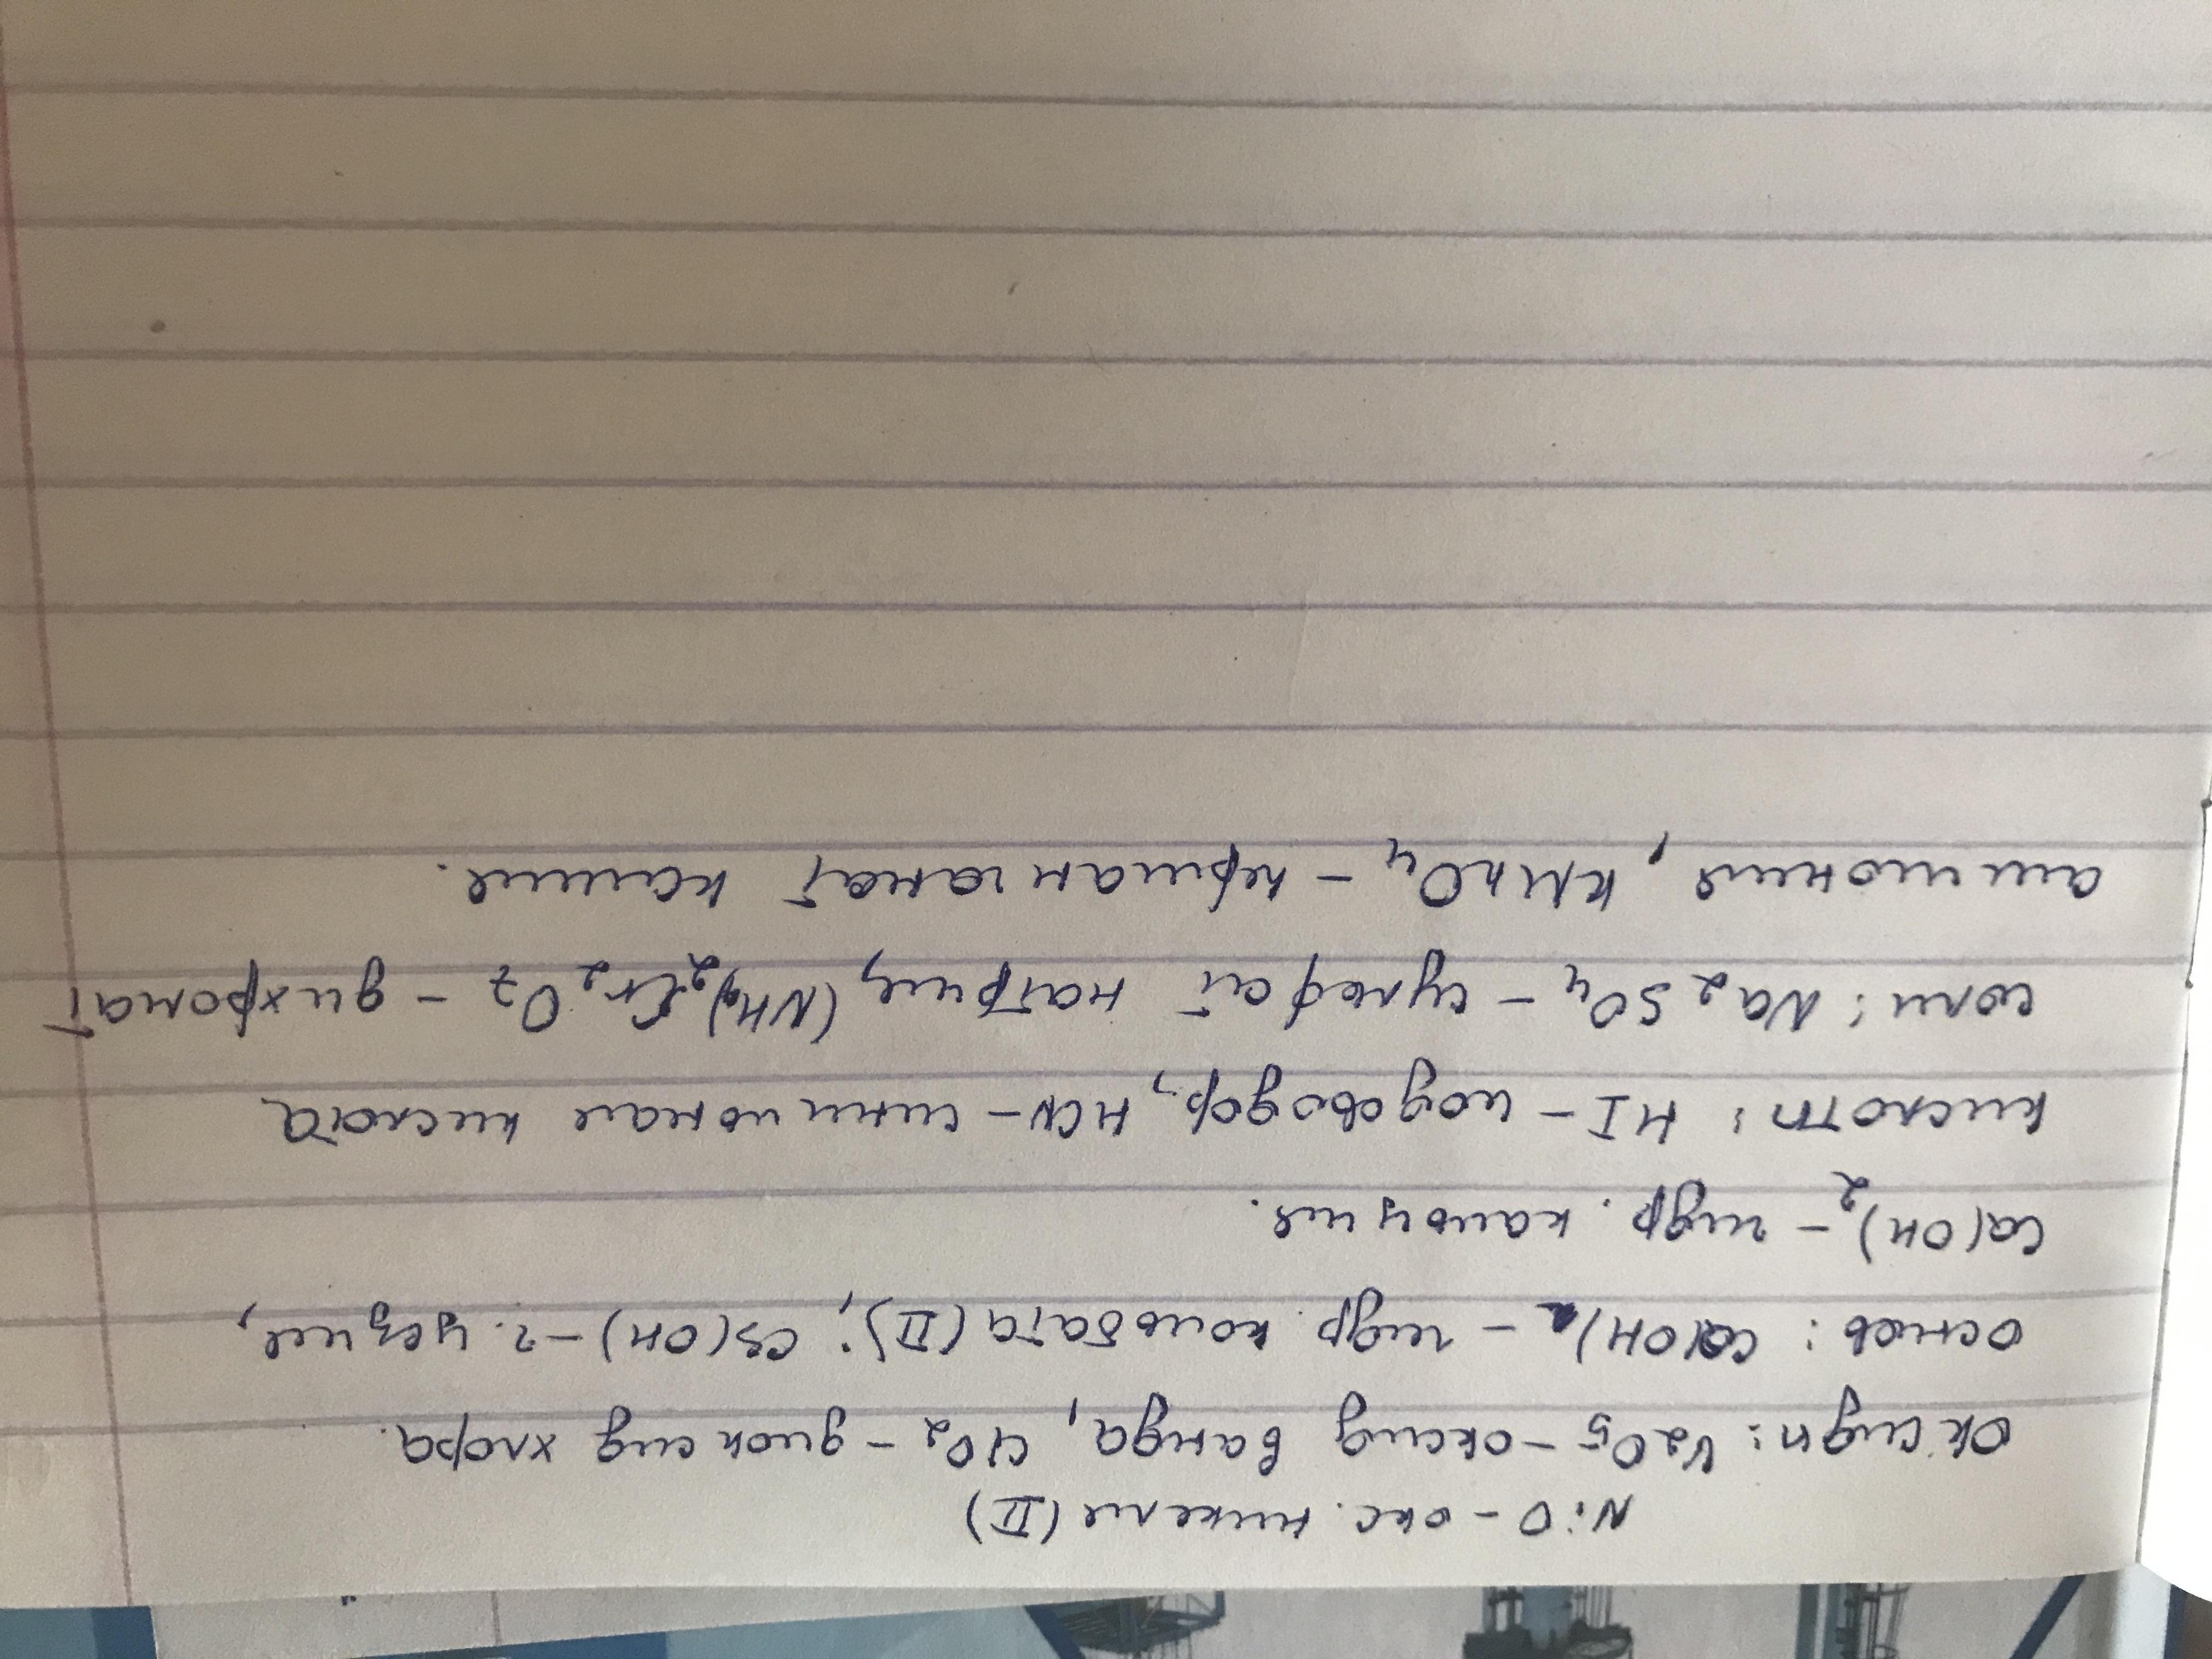 NiO - окс. никеля (II)
оксиды: V2O5 - оксид ванда, ClO2 - диоксид хлора.
основ: Co(OH)2 - гидр. кольбата (II); Cs(OH) - г. цезия,
Ca(OH)2 - гидр. кальция.
кислоты: HI - иодоводор, HCN - синильная кислота
соли: Na2SO4 - сульфат натрия, (NH4)2Cr2O7 - дихромат
аммония, KMnO4 - перманганат калия.